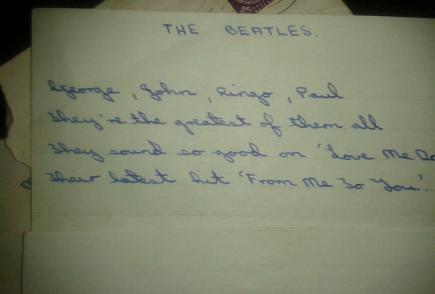 THE BEATLES.
George, John, Ringo, Paul
They're the greatest of them all
They sound so good on 'Love Me Do
Their latest hit 'From Me To You'.